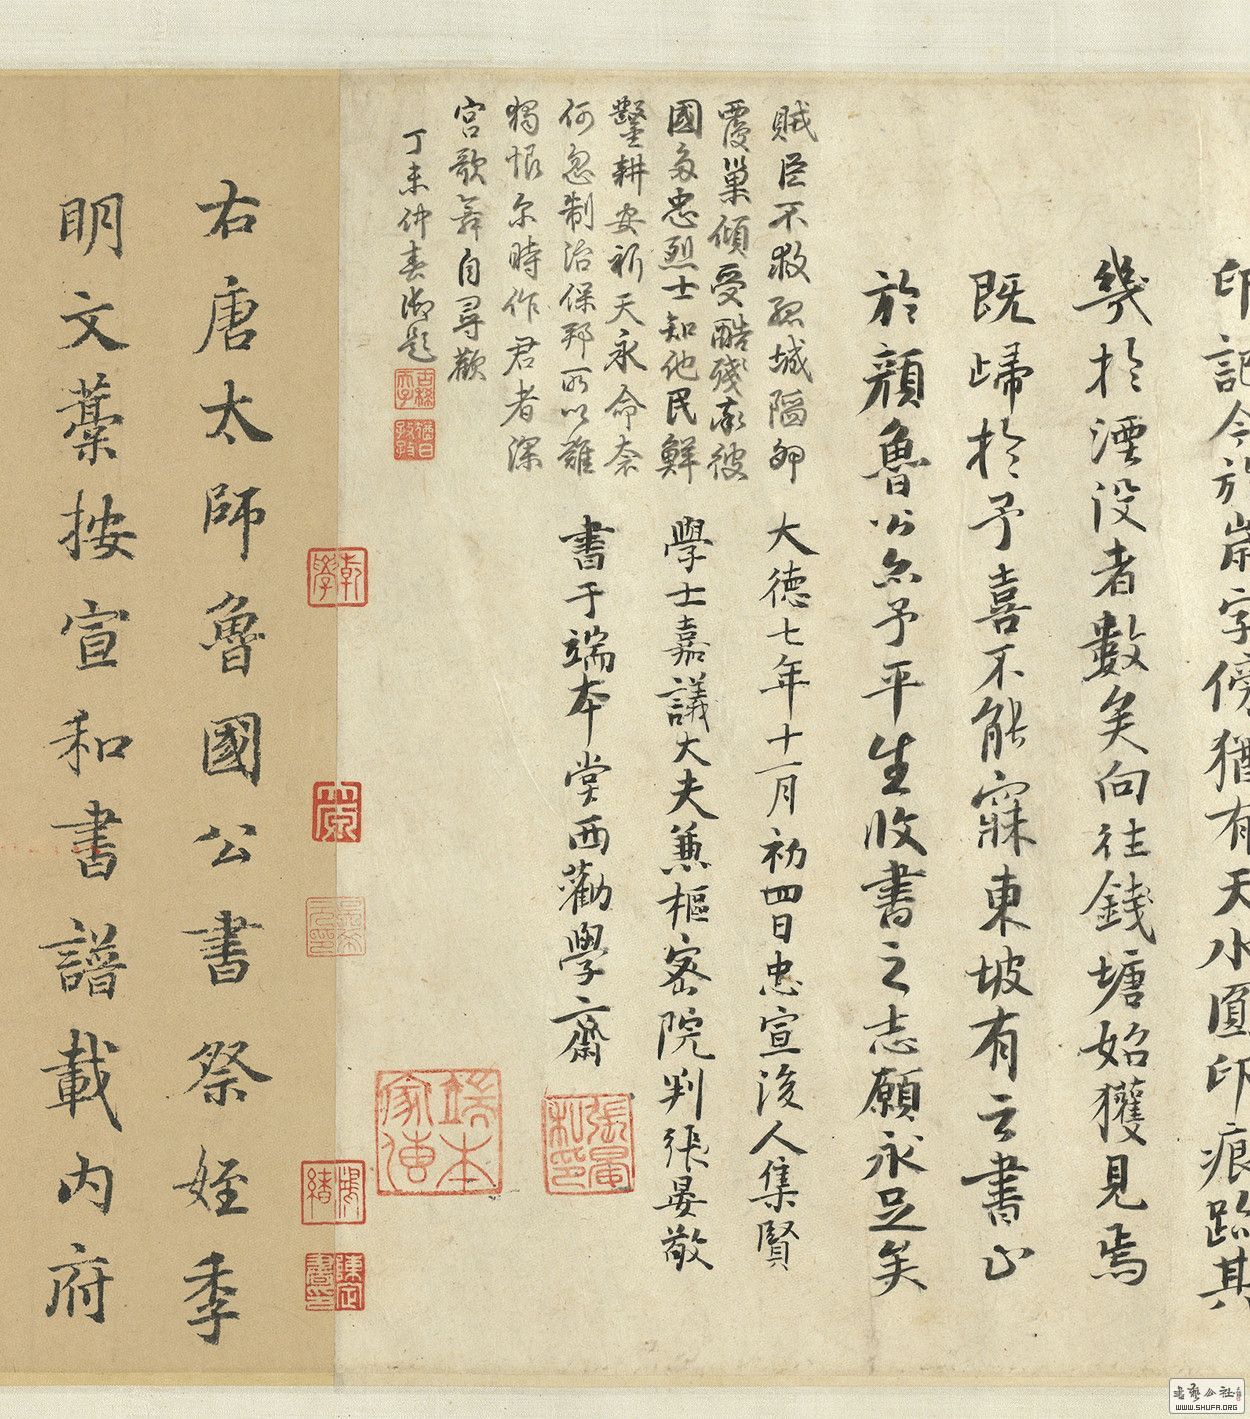 印記今於崇字傍猶有天水圓印痕跡其
幾於湮沒者數矣向往錢塘始獲見焉
既歸於予喜不能寐東坡有云書止
於顏魯公亦予平生收書之志願永足矣
大德七年十一月初四日忠宣後人集賢
學士嘉議大夫兼樞密院判張晏敬
書于端本堂西勸學齋
賊臣不救孤城陷卵
覆巢傾受酷殘南彼
國多忠烈士知他民鮮
鑿耕安祈天永命奈
何忽制治保邦所以難
獨恨尔時作君者深
宮歌舞自尋歡
丁未仲春御題
古稀天子
猶日孜孜
張晏私印
端本家傳
乾學
陳定書印
右唐太師魯國公書祭姪季
明文藁按宣和書譜載內府
書藝公社
WWW.SHUFA.ORG